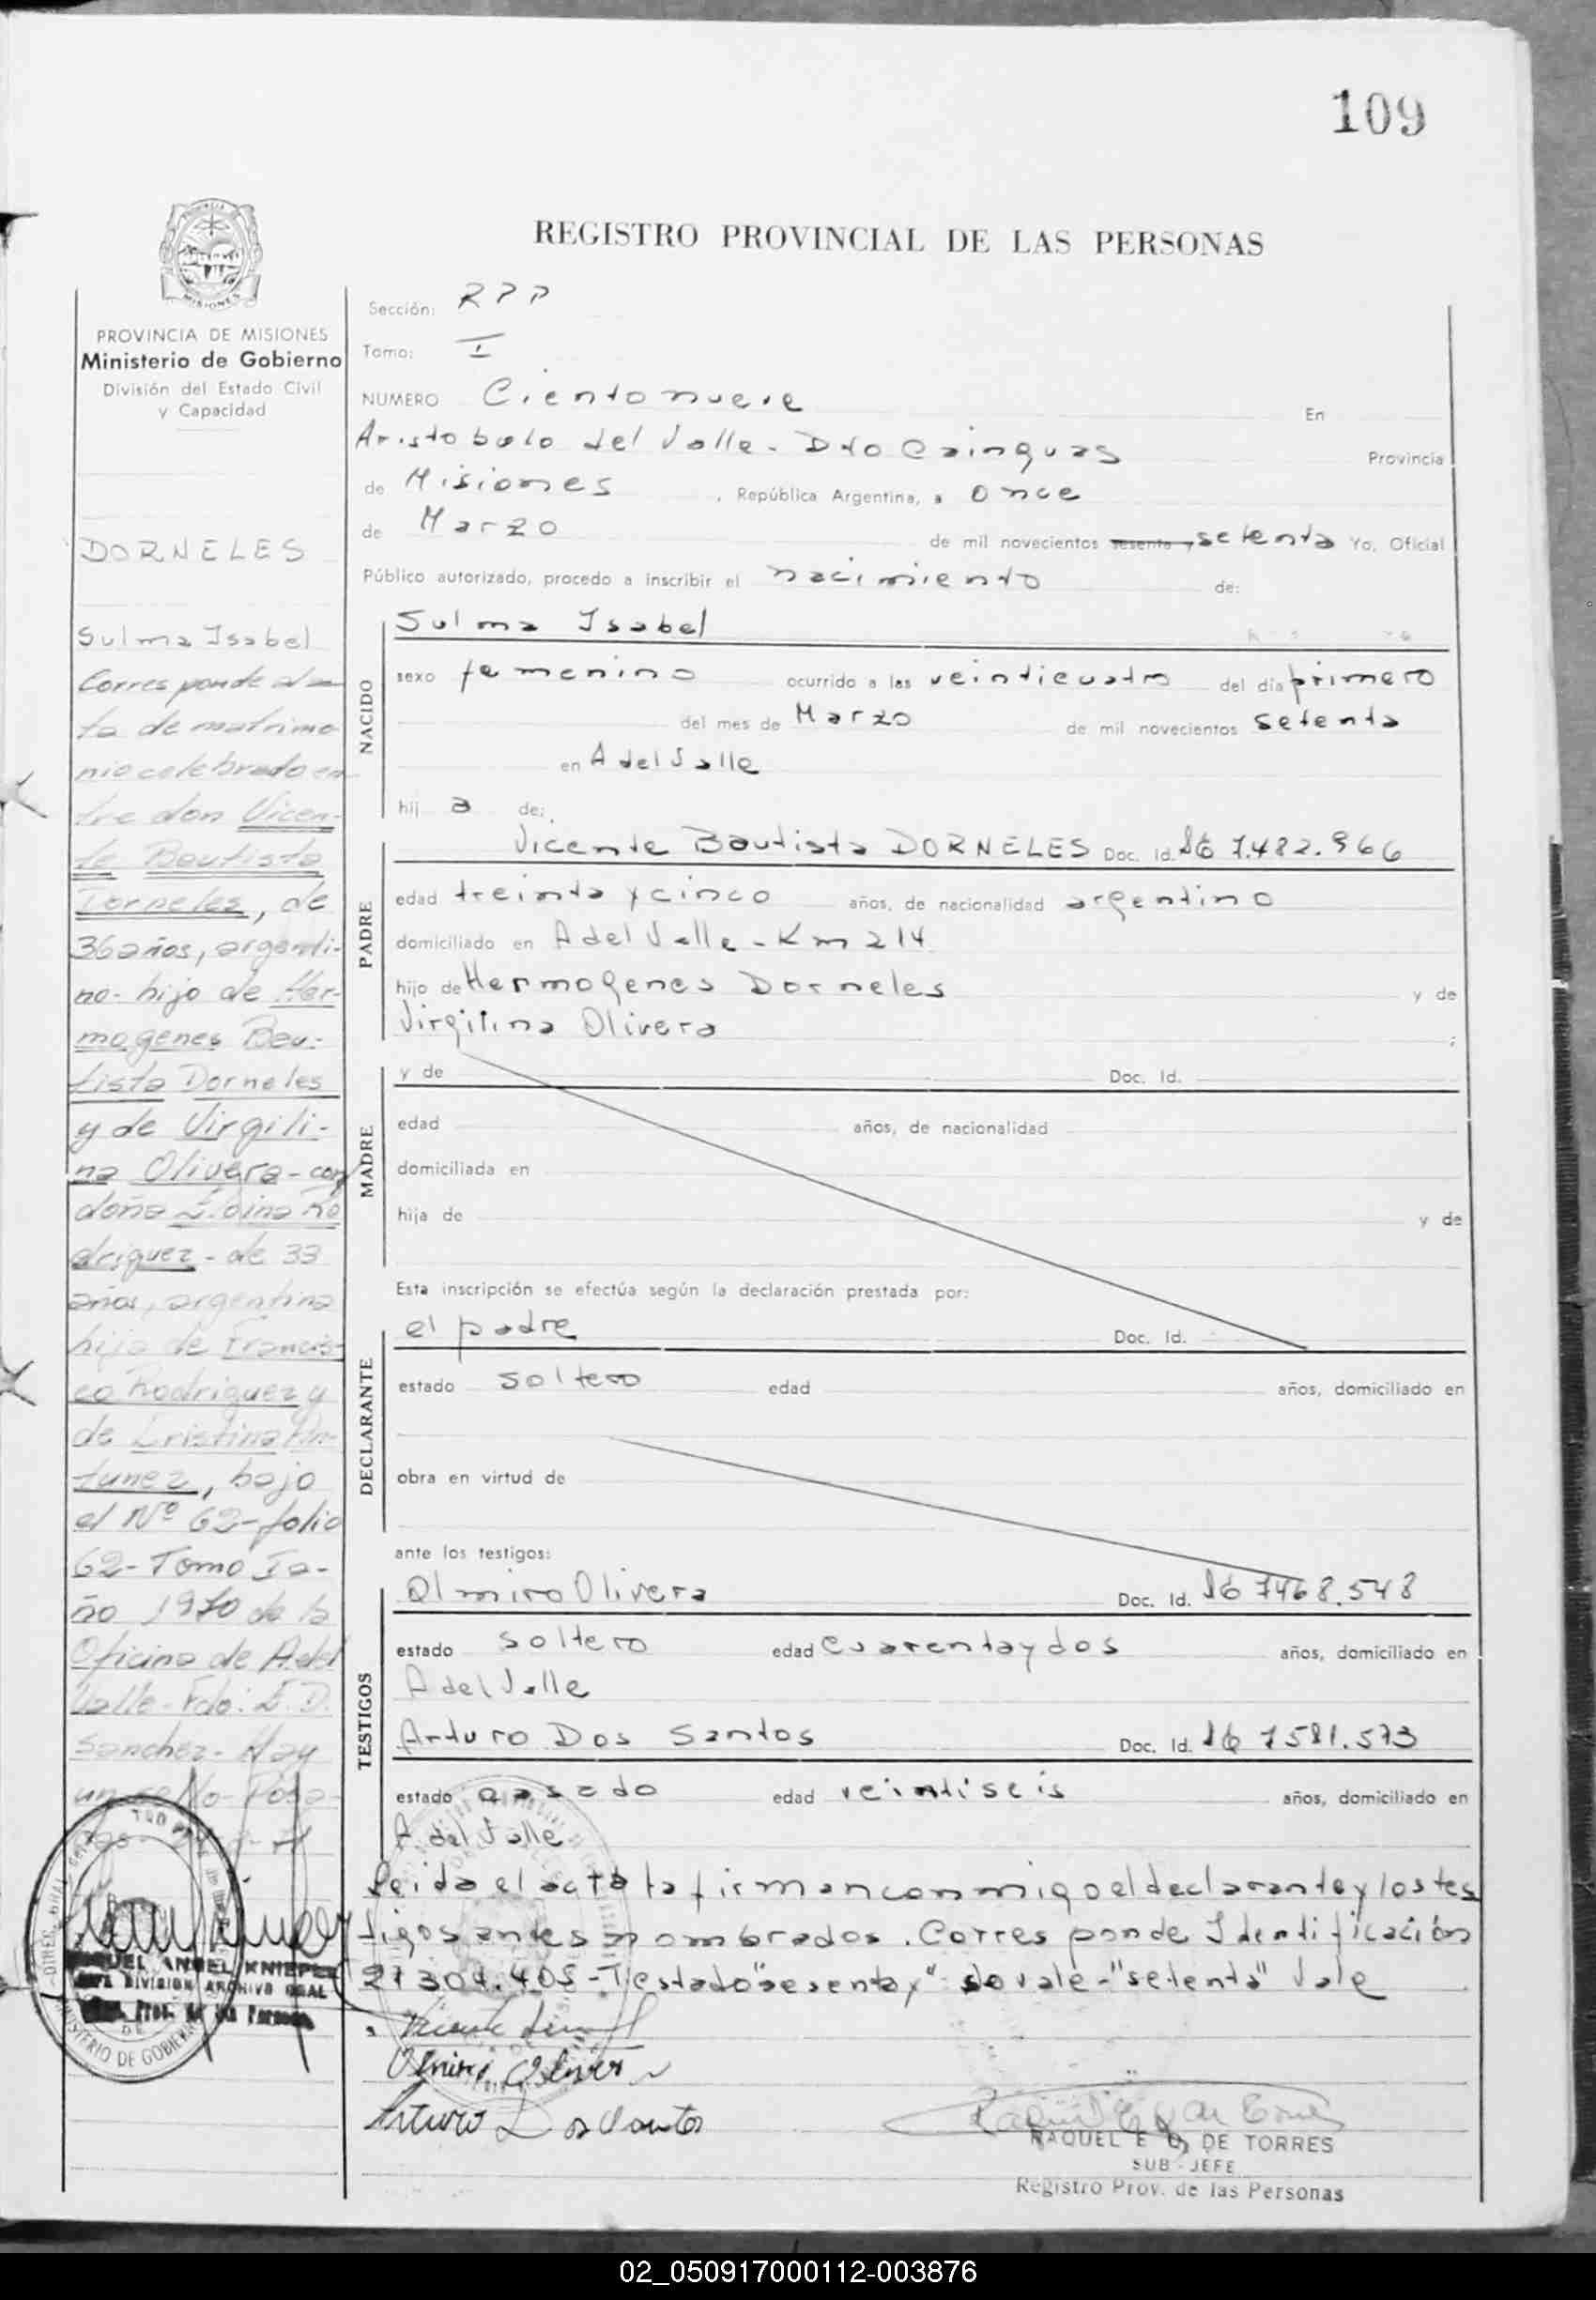 109
REGISTRO PROVINCIAL DE LAS PERSONAS
MISIONES
PROVINCIA DE MISIONES
Ministerio de Gobierno
División del Estado Civil
y Capacidad
DORNELES
Sulma Isabel
Corresponde al ac
ta de matrimo
nio celebrado en
tre don Vicen-
te Bautista
Dorneles, de
36 años, argenti-
no- hijo de Her-
mogenes Bau-
tista Dorneles
y de Virgili-
na Olivera - con
doña Ro
driguez - de 33
años, argentina
hija de Francis-
co Rodriguez y
de Cristina An-
tunez, bajo
el Nº 62 - folio
62 - Tomo I a-
ño 1970 de la
Oficina de A. del
Valle - Fdo: E. D.
Sanchez - Hay
un sello - Posa-
MINISTERIO DE GOBIERNO
MIGUEL ANGEL KNIEPLE
DIVISION ARCHIVO GRAL
Prov. de las Personas
Sección: RPP
Tomo: I
NUMERO Ciento nueve En
Aristobulo del Valle - Dto Cainguas Provincia
de Misiones, República Argentina, a once
de Marzo de mil novecientos sesenta y setenta Yo, Oficial
Público autorizado, procedo a inscribir el nacimiento de:
NACIDO
Sulma Isabel
sexo femenino ocurrido a las veinticuatro del día primero
del mes de Marzo de mil novecientos setenta
en A del Valle
hij a de:
PADRE
Vicente Bautista DORNELES Doc. Id. 7.482.966
edad treinta y cinco años, de nacionalidad argentino
domiciliado en A del Valle - Km 214
hijo de Hermogenes Dorneles y de
Virgilina Olivera ;
MADRE
y de Doc. Id.
edad años, de nacionalidad
domiciliada en
hija de y de
Esta inscripción se efectúa según la declaración prestada por:
DECLARANTE
el padre Doc. Id.
estado soltero edad años, domiciliado en
obra en virtud de
ante los testigos:
TESTIGOS
Olmiro Olivera Doc. Id. 7468.548
estado soltero edad cuarenta y dos años, domiciliado en
A del Valle
Arturo Dos Santos Doc. Id. 7581.573
estado casado edad veintiseis años, domiciliado en
A del Valle
Leida el acta la firman conmigo el declarante y los tes
tigos antes nombrados. Corresponde Identificación
21304.405 - Testado "sesenta y" no vale - "setenta" Vale
Olmiro Olivera
Arturo Dos Santos
RAQUEL E DE TORRES
SUB - JEFE
Registro Prov. de las Personas
02_050917000112-003876